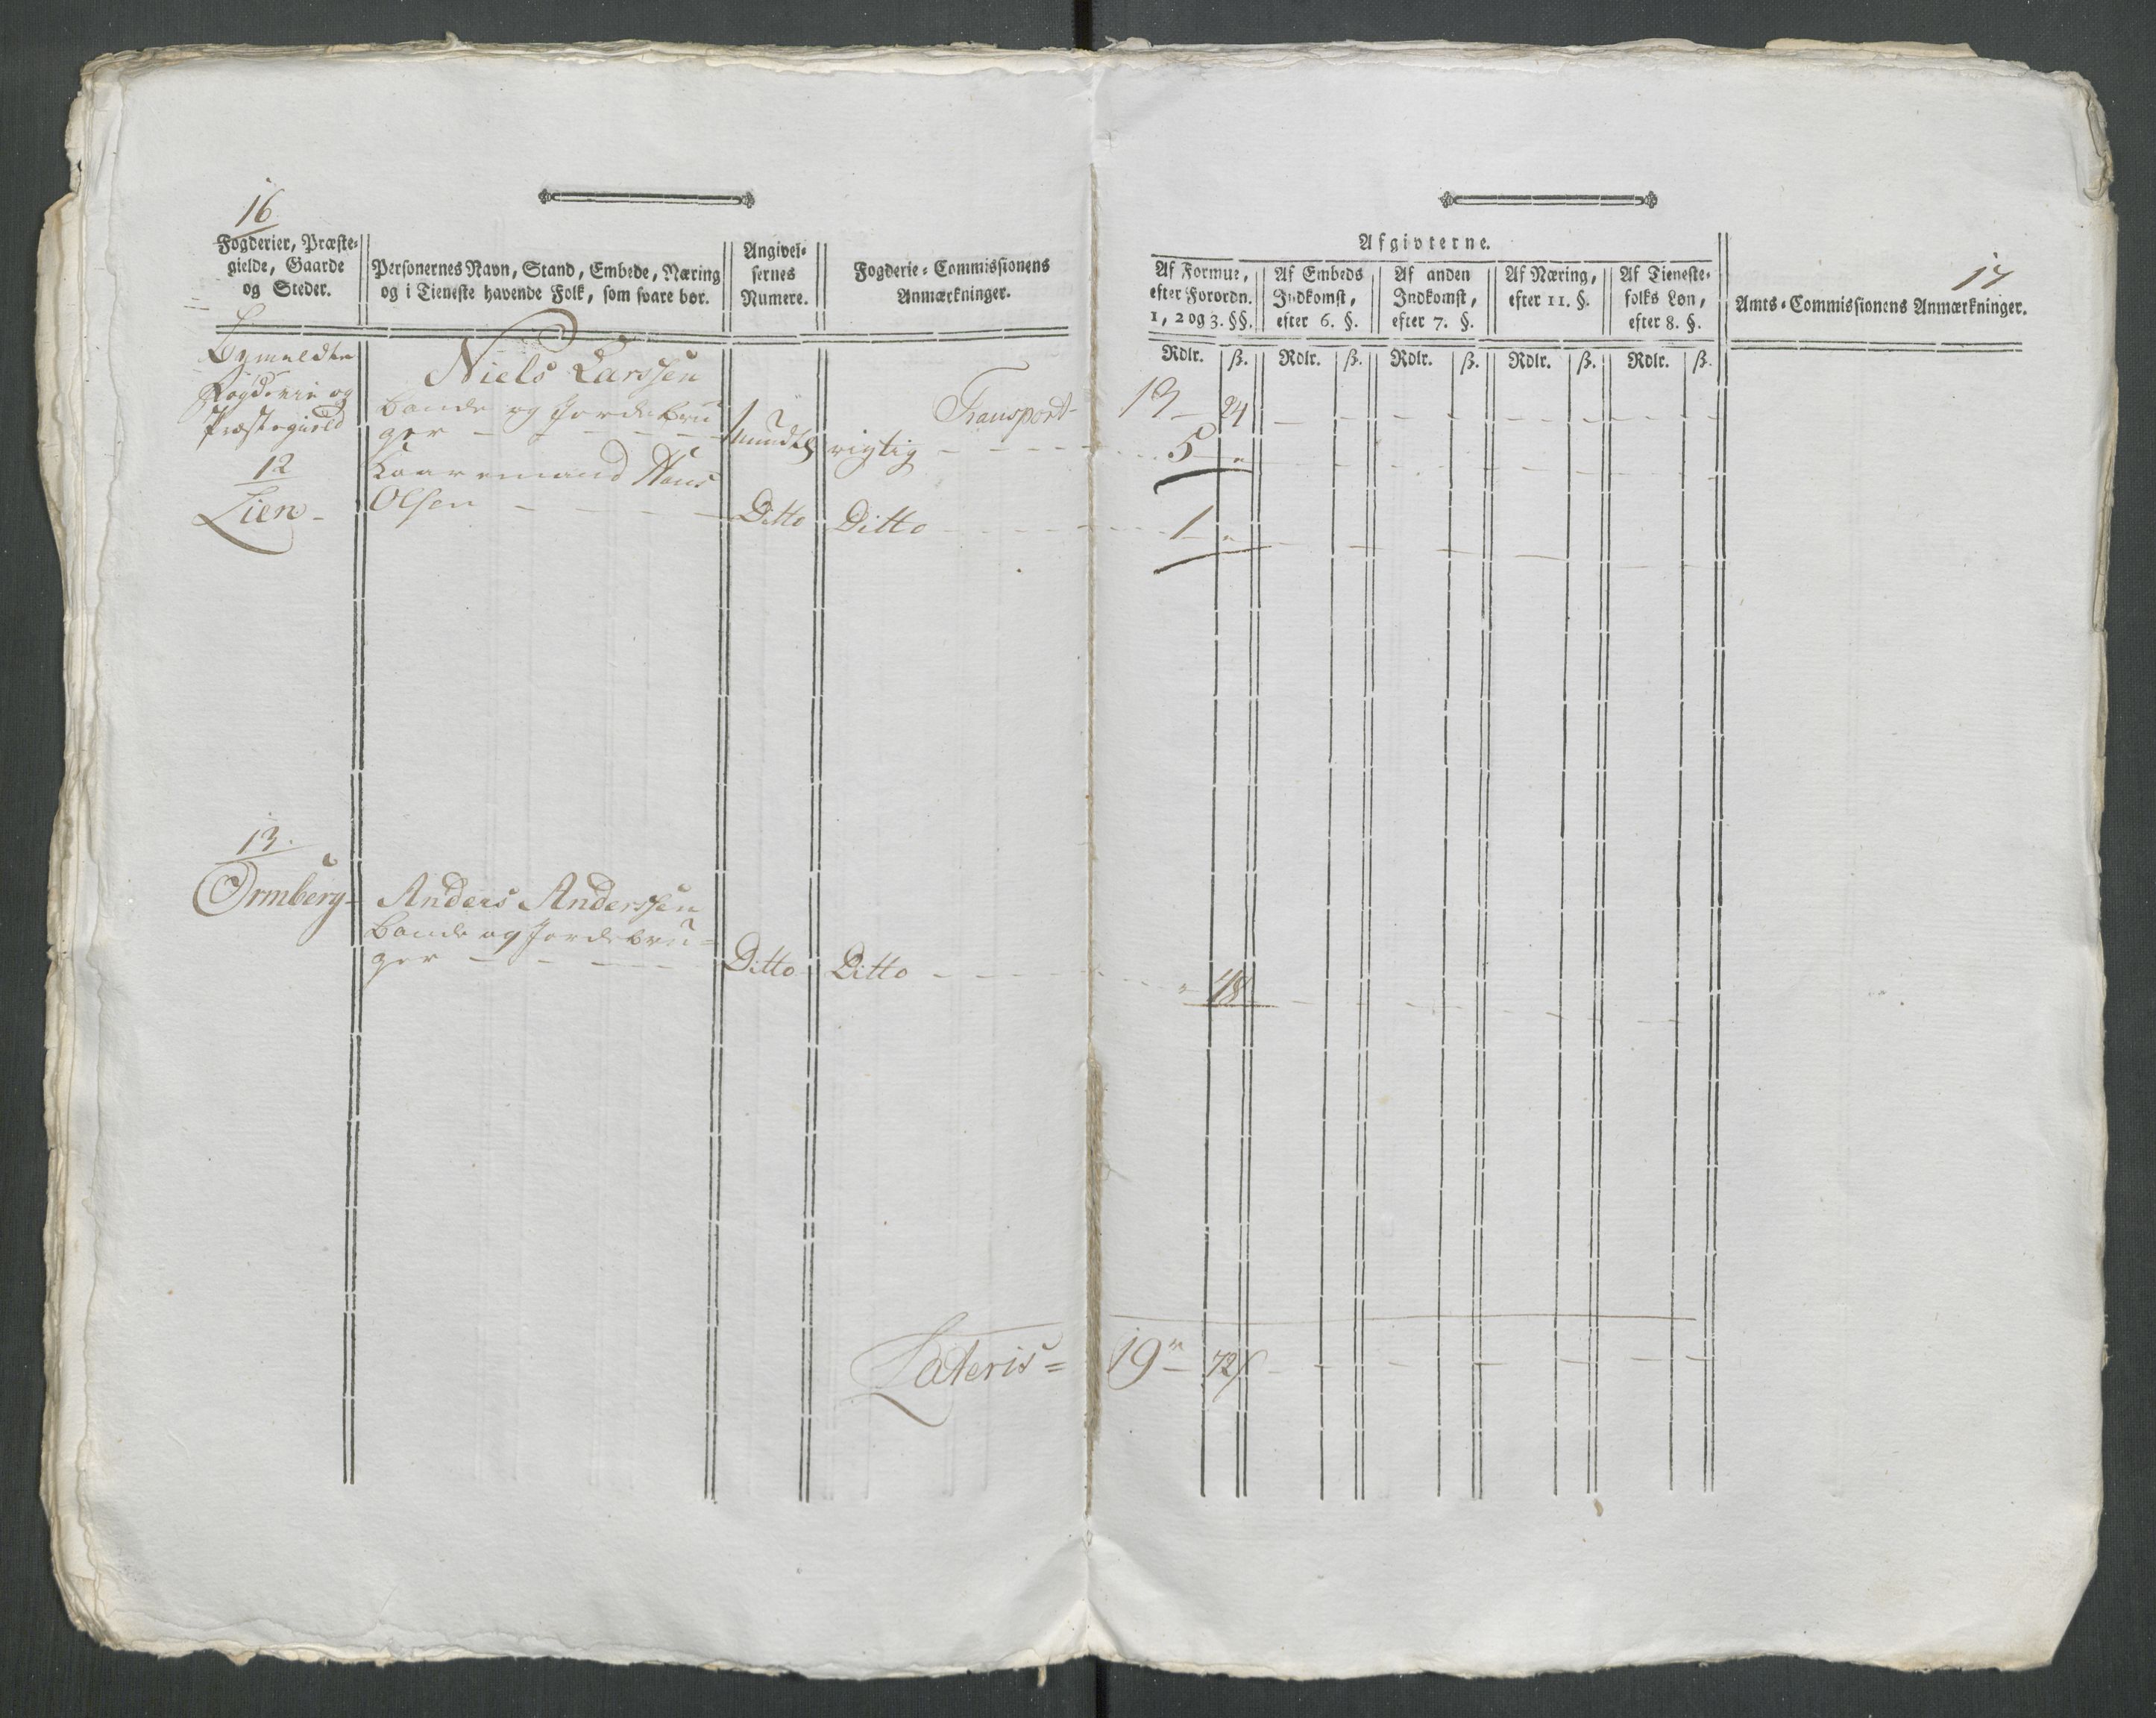 16
Fogderier, Præste-
gielde, Gaarde
og Steder.
Personernes Navn, Stand, Embede, Næring
og i Tieneste havende Folk, som svare bør.
Angivel-
sernes
Numere.
Fogderie-Commissionens
Anmærkninger.
Bymeldte
Fogderie og
Præstegield
12
Lien
Niels Larssen
bonde og Jordebru
ger
mundtl
rigtig
Transport
Kaaremand Hans
Olsen
Ditto
Ditto
13.
Ormberg
Anders Anderssen
Bonde og Jordebru-
ger
Ditto
Ditto
Lateris =
17
Afgivterne.
Af Formue,
efter Forordn.
1, 2 og 3. §§.
Af Embeds
Indkomst,
efter 6. §.
Af anden
Indkomst,
efter 7. §.
Af Næring,
efter 11. §.
Af Tieneste-
folks Løn,
efter 8. §.
Amts-Commissionens Anmærkninger.
Rdlr. ß. Rdlr. ß. Rdlr. ß. Rdlr. ß. Rdlr. ß.
13 - 24
5 "
1 "
" 48
19 - 72